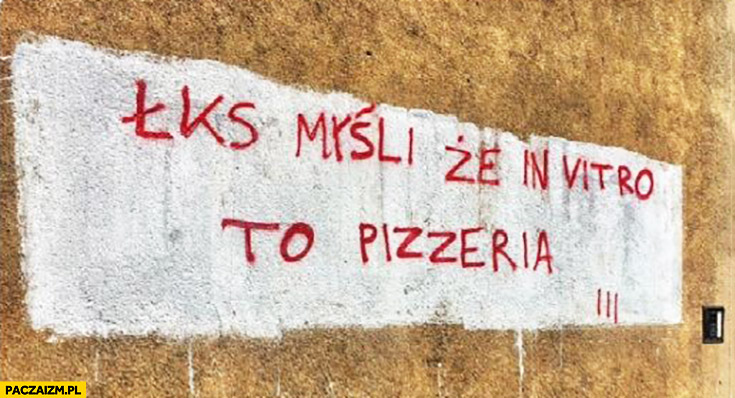 ŁKS MYŚLI ŻE IN VITRO
TO PIZZERIA
!!!
PACZAIZM.PL